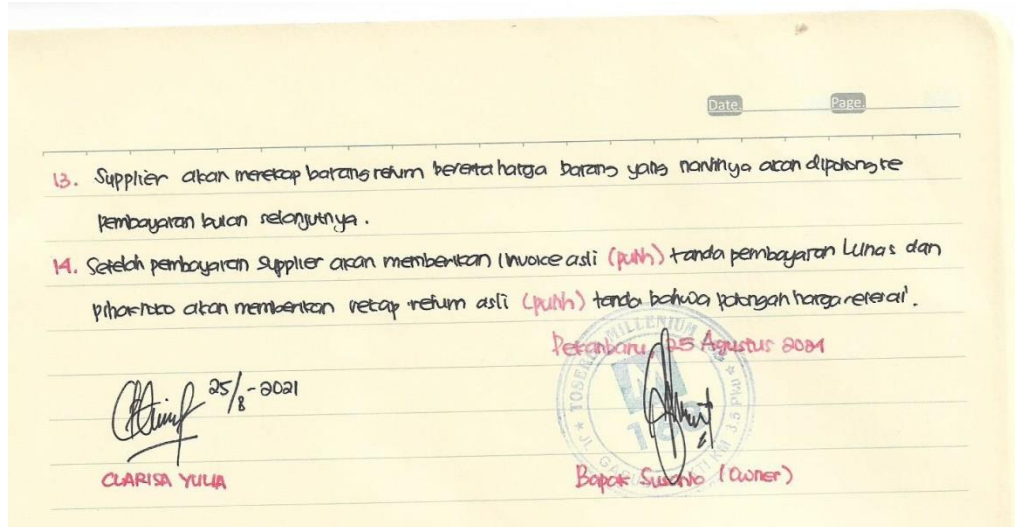 Date. Page.
13. Supplier akan merekap barang return beserta harga barang yang nantinya akan dipotong ke
pembayaran bulan selanjutnya.
14. Setelah pembayaran Supplier akan memberikan Invoice asli (putih) tanda pembayaran Lunas dan
pihak toko akan memberikan rekap return asli (putih) tanda bahwa potongan harga selesai.
Pekanbaru, 25 Agustus 2021
25/8-2021
TOSERBA MILLENIUM
JL. GARUDA SAKTI KM 3.5 PKU
CLARISA YULIA
Bapak Susanto (Owner)